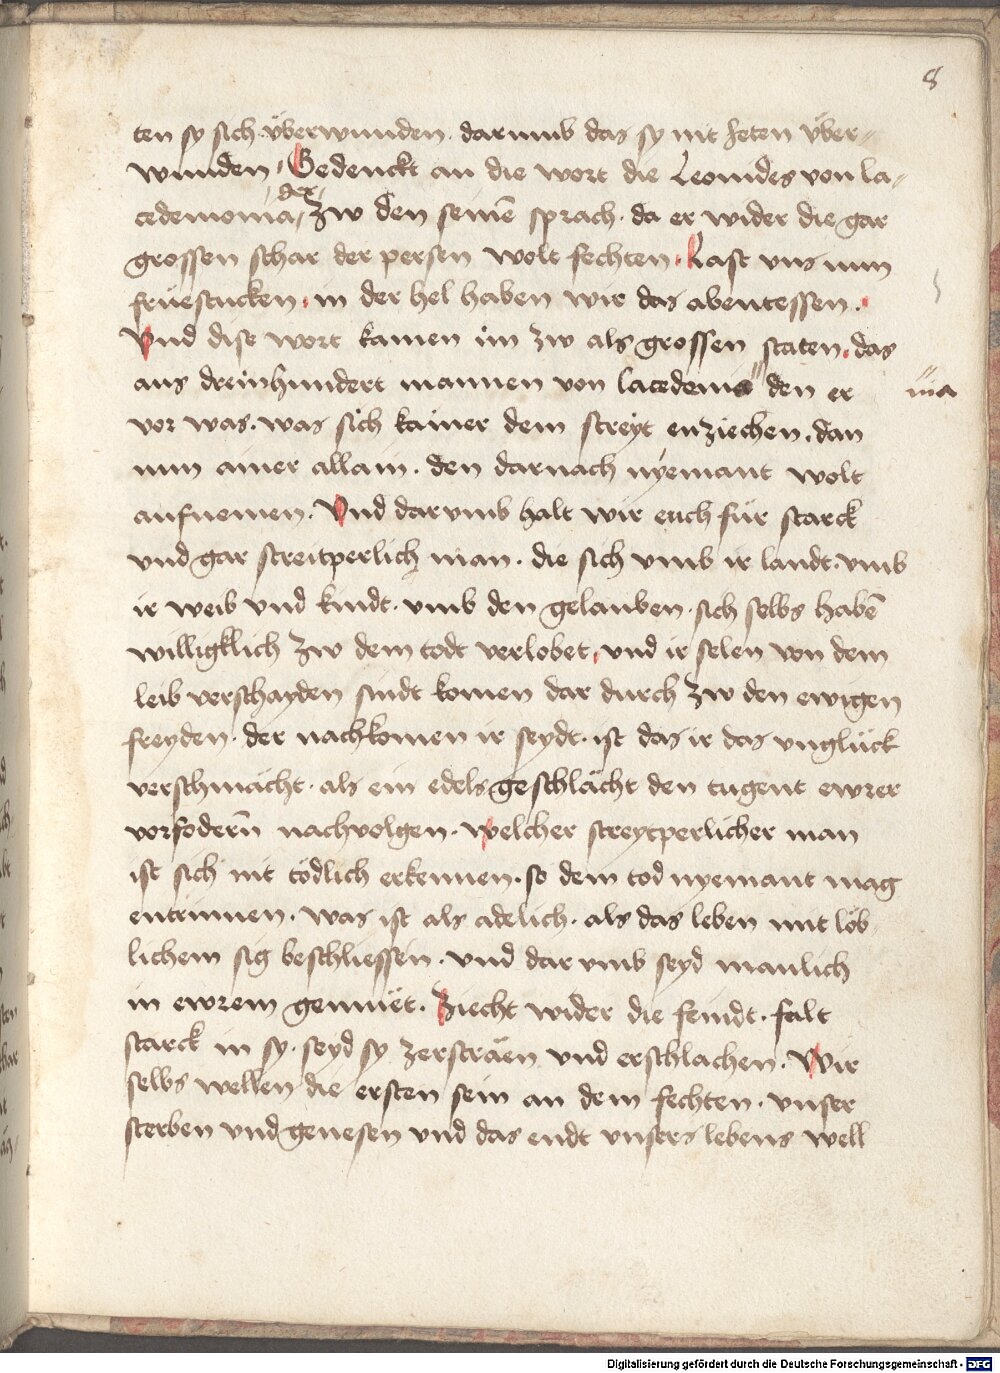 8
ten sy sich überwunden · darumb das sy nit heten über-
wunden · Gedenckt an die wort die Leonides von la-
cedemonia, der zw den seinē sprach · da er wider die gar
grossen schar der persen wolt fechten · Last uns nun
früestucken · in der hel haben wir das abentessen ·
Und dise wort kamen im zw als grossen staten · das
aus dreinhundert mannen von lacedemia den er
nia
vor was · was sich kainer dem streyt enziechen · dan
nun ainer allain · den darnach nyemant wolt
aufnemen · Und darvmb halt wir euch für starck
vnd gar streitperlich man · die sich vmb ir landt · vmb
ir weib vnd kindt · vmb den gelauben · sich selbs habē
willigklich zw dem todt verlobet · vnd ir selen von dem
leib verschayden sindt komen dar durch zw den ewigen
freyden · der nachkomen ir seydt · ist das ir das vnglück
verschmächt · als ein edels geschlächt den tugent ewrer
vorfodern̄ nachvolgen · welcher streytperlicher man
ist sich nit tödlich erkennen · so dem tod nyemant mag
entrinnen · was ist als adelich · als das leben mit löb-
lichem sig beschliessen · vnd dar vmb seyd manlich
in ewrem gemüet · Ziecht wider die feindt · falt
starck in sy · seyd sy zersträen vnd erschlachen · Wir
selbs wellen die ersten sein an dem fechten · vnser
sterben vnd genesen vnd das endt vnsers lebens well
Digitalisierung gefördert durch die Deutsche Forschungsgemeinschaft - DFG